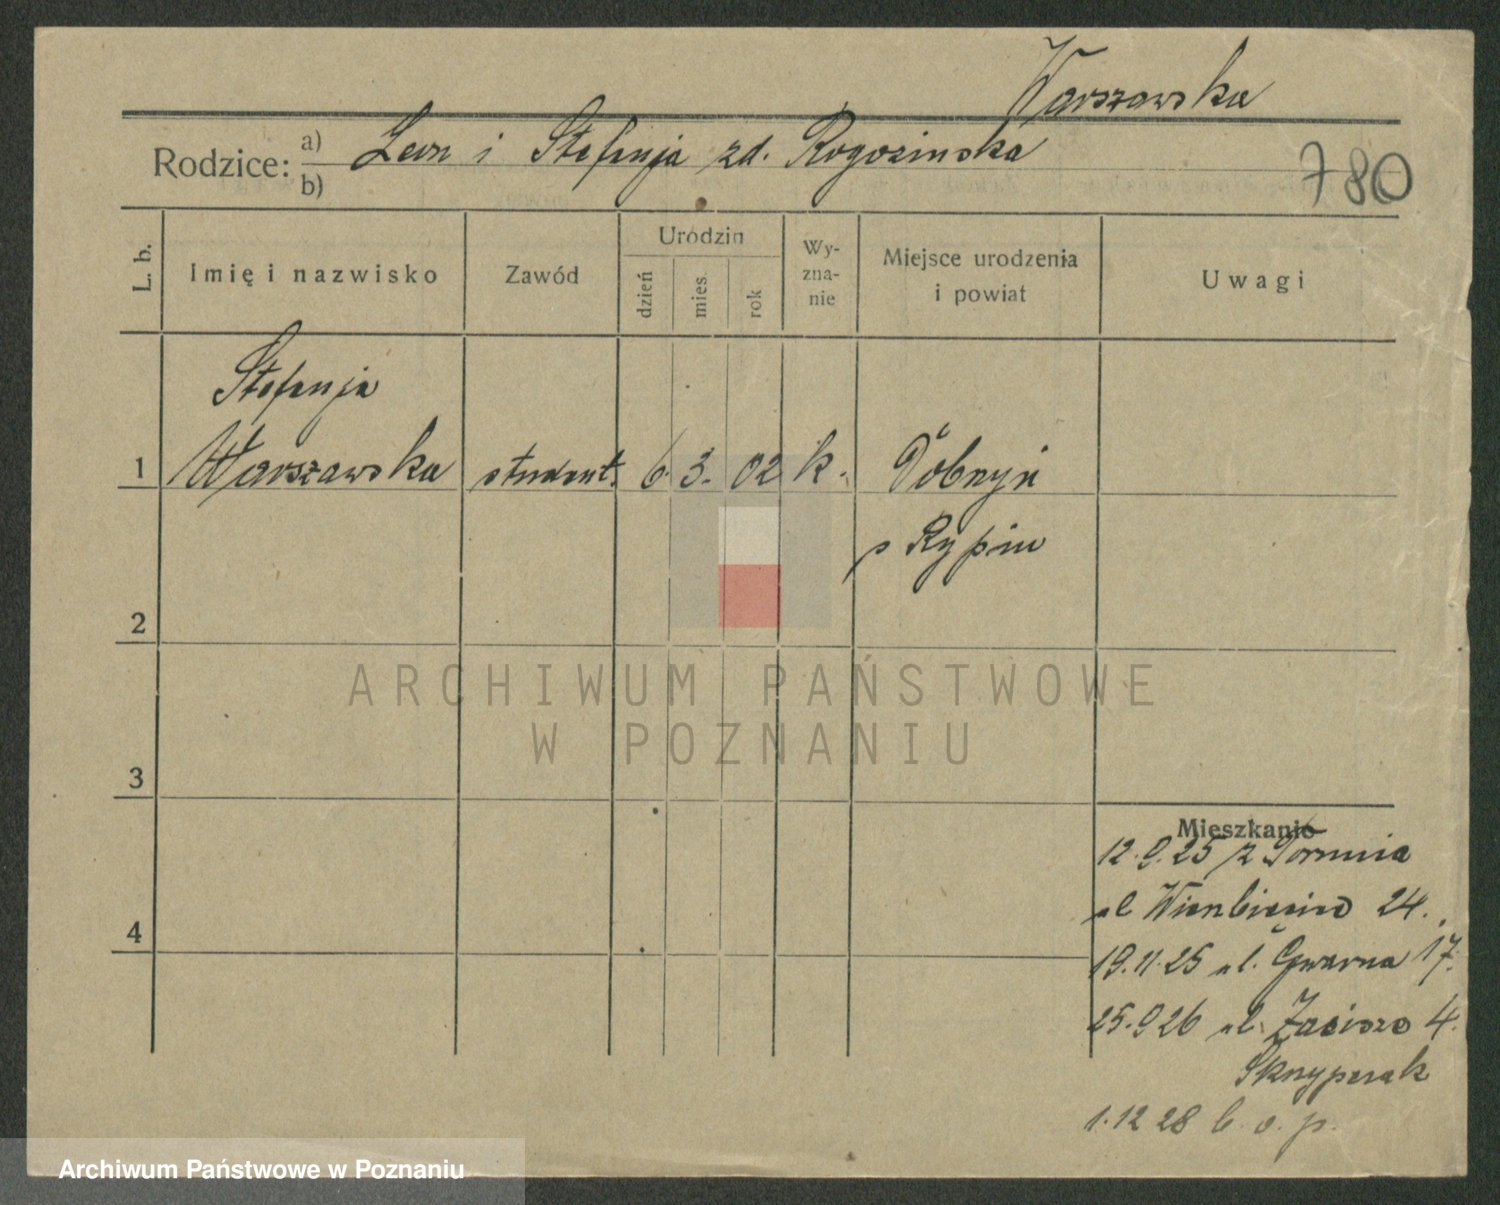 Warszawska
Rodzice: a) Leon i Stefanja zd. Rogozinska
b)
780
L. b.
Imię i nazwisko
Zawód
Urodzin
dzień
mies.
rok
Wy-
zna-
nie
Miejsce urodzenia
i powiat
Uwagi
Stefanja
1 Warszawska student. 6. 3. 02 k. Dobrzyń
p Rypin
2
3
4
Mieszkanie
12.9.25 z Torunia
ul Wierzbięcice 24.
19.11.25 ul. Gwarna 17.
25.9.26 ul. Zacisze 4.
1.12 28 b. o. p.
ARCHIWUM PAŃSTWOWE
W POZNANIU
Archiwum Państwowe w Poznaniu